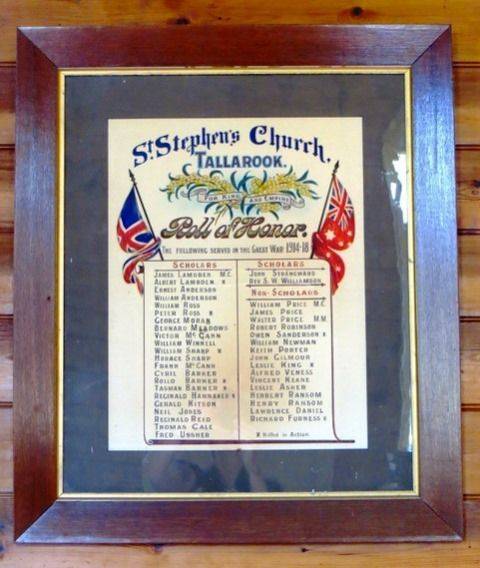 St. Stephen's Church,
TALLAROOK.
FOR KING AND EMPIRE
Roll of Honor.
THE FOLLOWING SERVED IN THE GREAT WAR 1914-18
SCHOLARS
JAMES M.C.
ALBERT LAMBDEN X
ERNEST ANDERSON
WILLIAM ANDERSON
WILLIAM ROSS
PETER ROSS X
GEORGE MORAN
BERNARD MEADOWS
VICTOR McCANN
WILLIAM WINNELL
WILLIAM SHARP X
HORACE SHARP
FRANK McCANN
CYRIL BARKER
ROLLO BARKER X
TASMAN BARKER X
REGINALD X
GERALD KITSON
NEIL JONES
REGINALD REID
THOMAS GALE
FRED USSHER
SCHOLARS
JOHN
REV. S. W. WILLIAMSON
NON-SCHOLARS
WILLIAM PRICE M.C.
JAMES PRICE
WALTER PRICE M.M.
ROBERT ROBINSON
OWEN SANDERSON X
WILLIAM NEWMAN
KEITH PORTER
JOHN GILMOUR
LESLIE KING X
ALFRED VENESS
VINCENT KEANE
LESLIE ASHER
HERBERT RANSOM
HENRY RANSOM
LAWRENCE DANIEL
RICHARD FURNESS X
X Killed in Action.